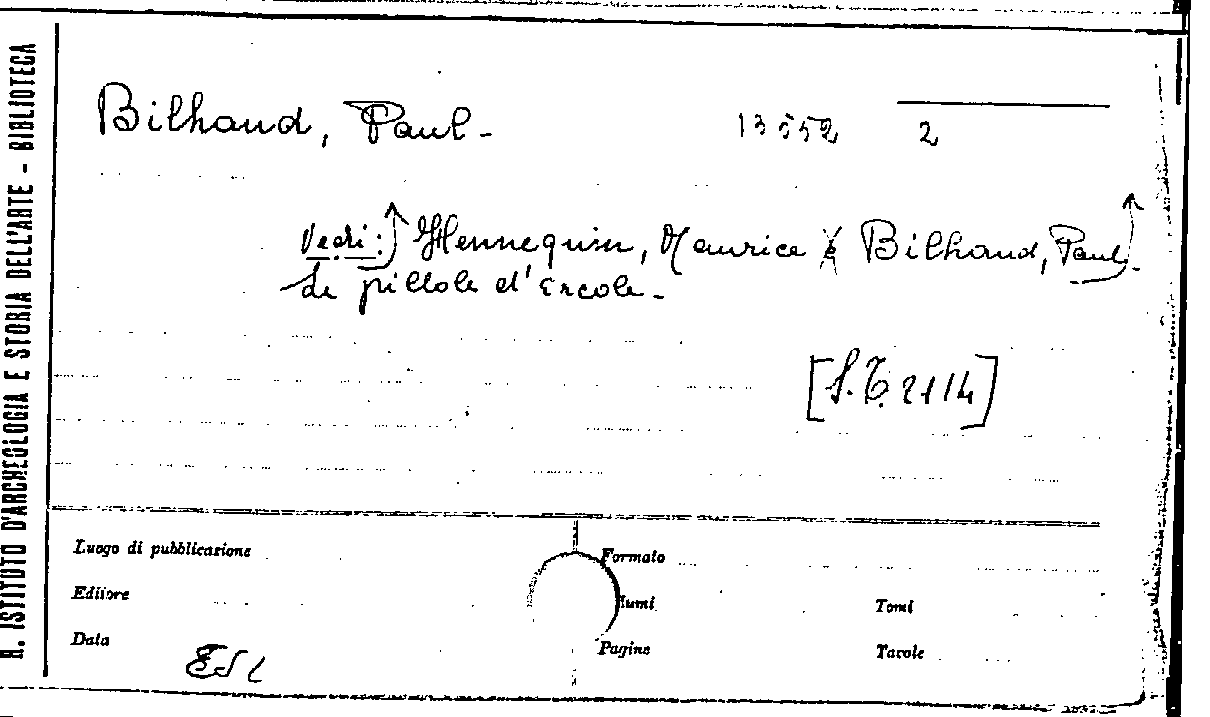 R. ISTITUTO D'ARCHEOLOGIA E STORIA DELL'ARTE - BIBLIOTECA
Bilhaud, Paul -
13552 2
Vedi: Hennequin, Maurice e Bilhaud, Paul -
Le pillole d'Ercole -
[S.T. 2114]
Luogo di pubblicazione Formato
Editore lumi Tomi
Data Pagine Tavole